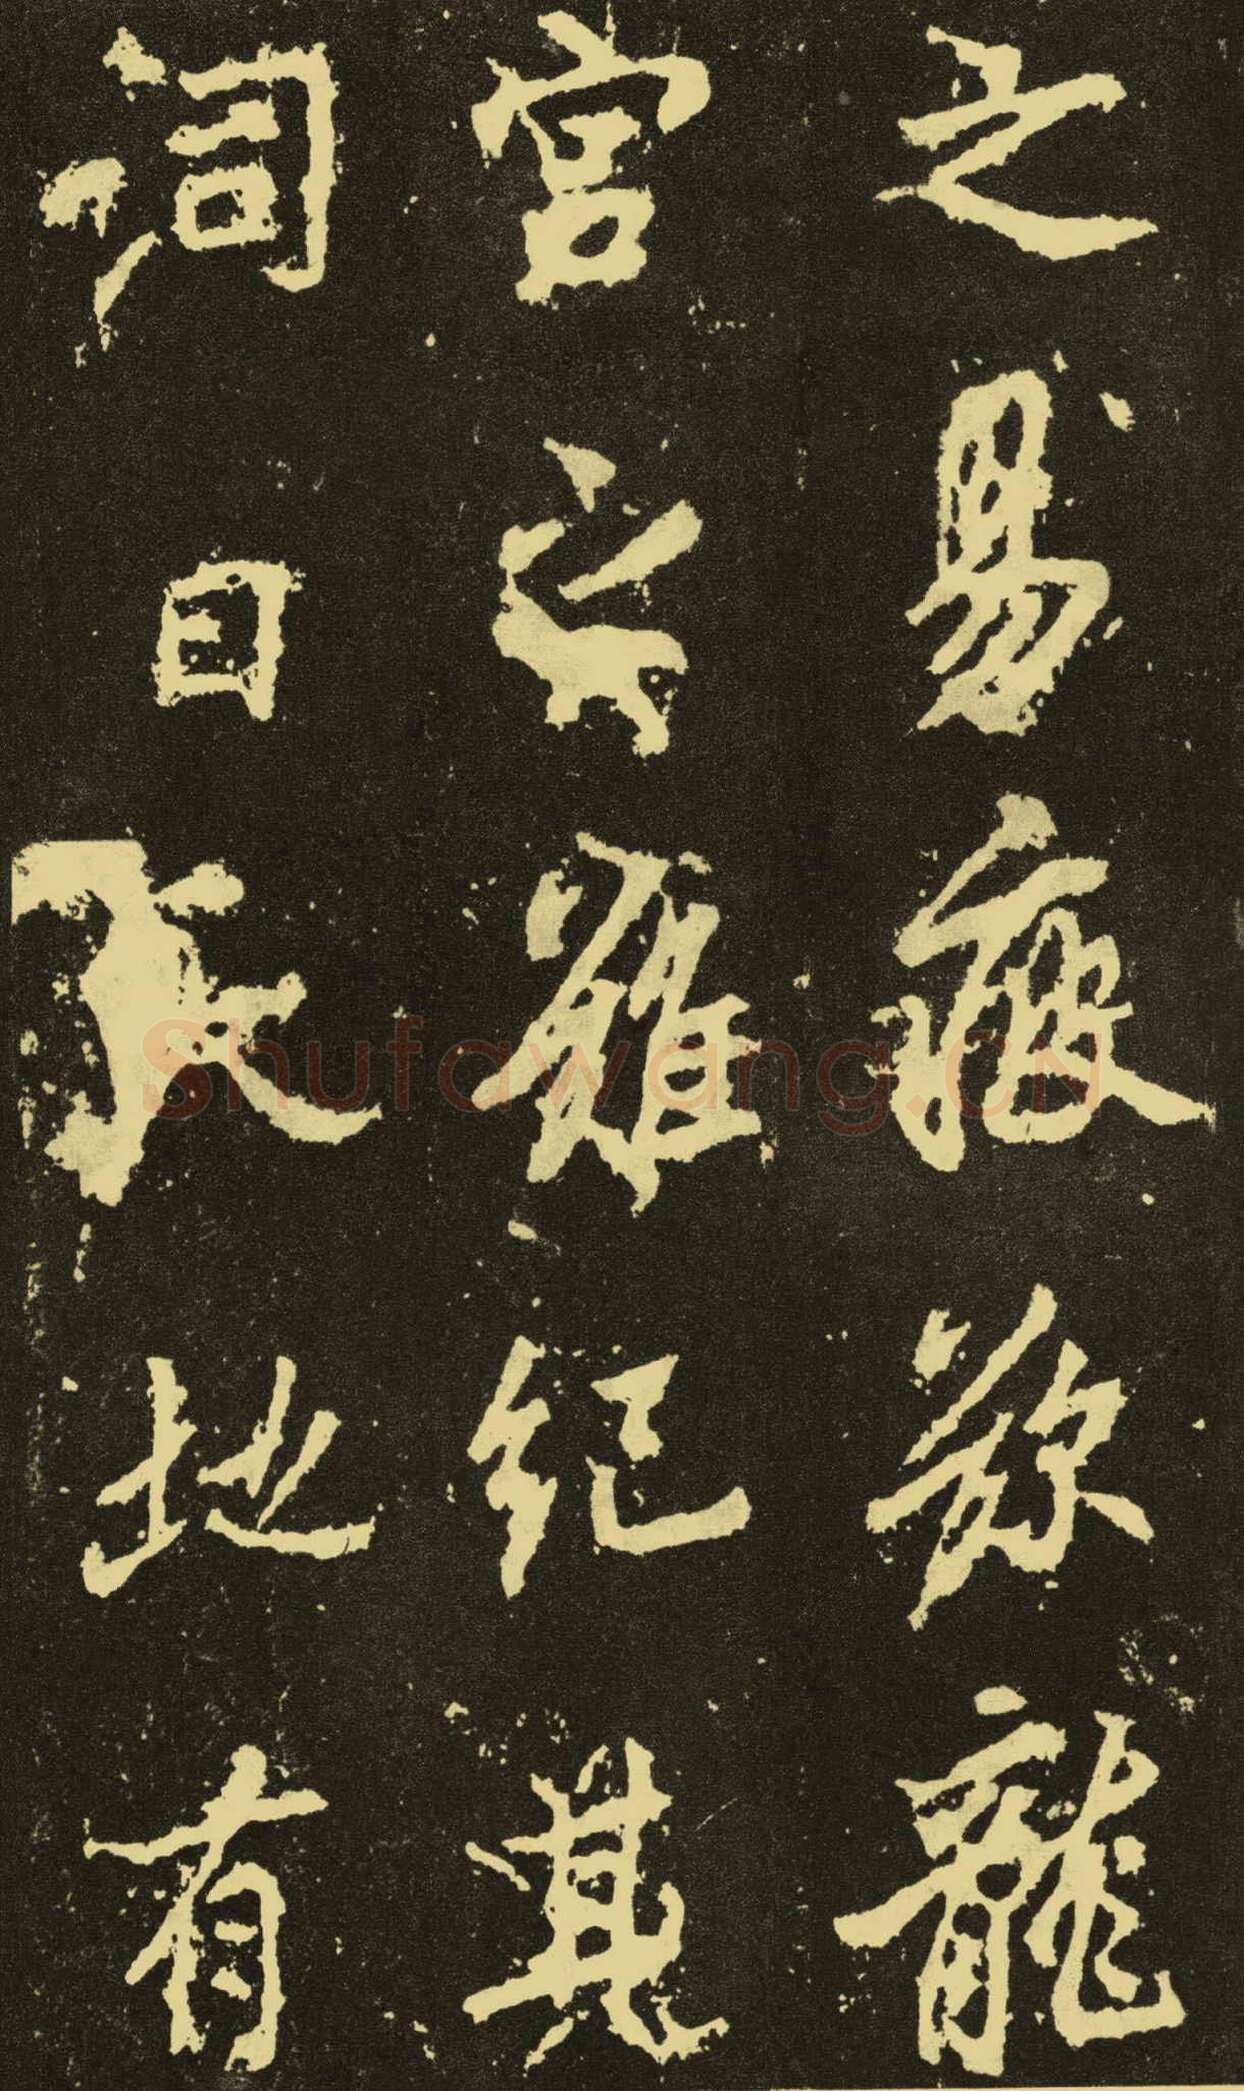 之易疲龍
宮之難紀其
詞曰天地有
Shufawang.CN